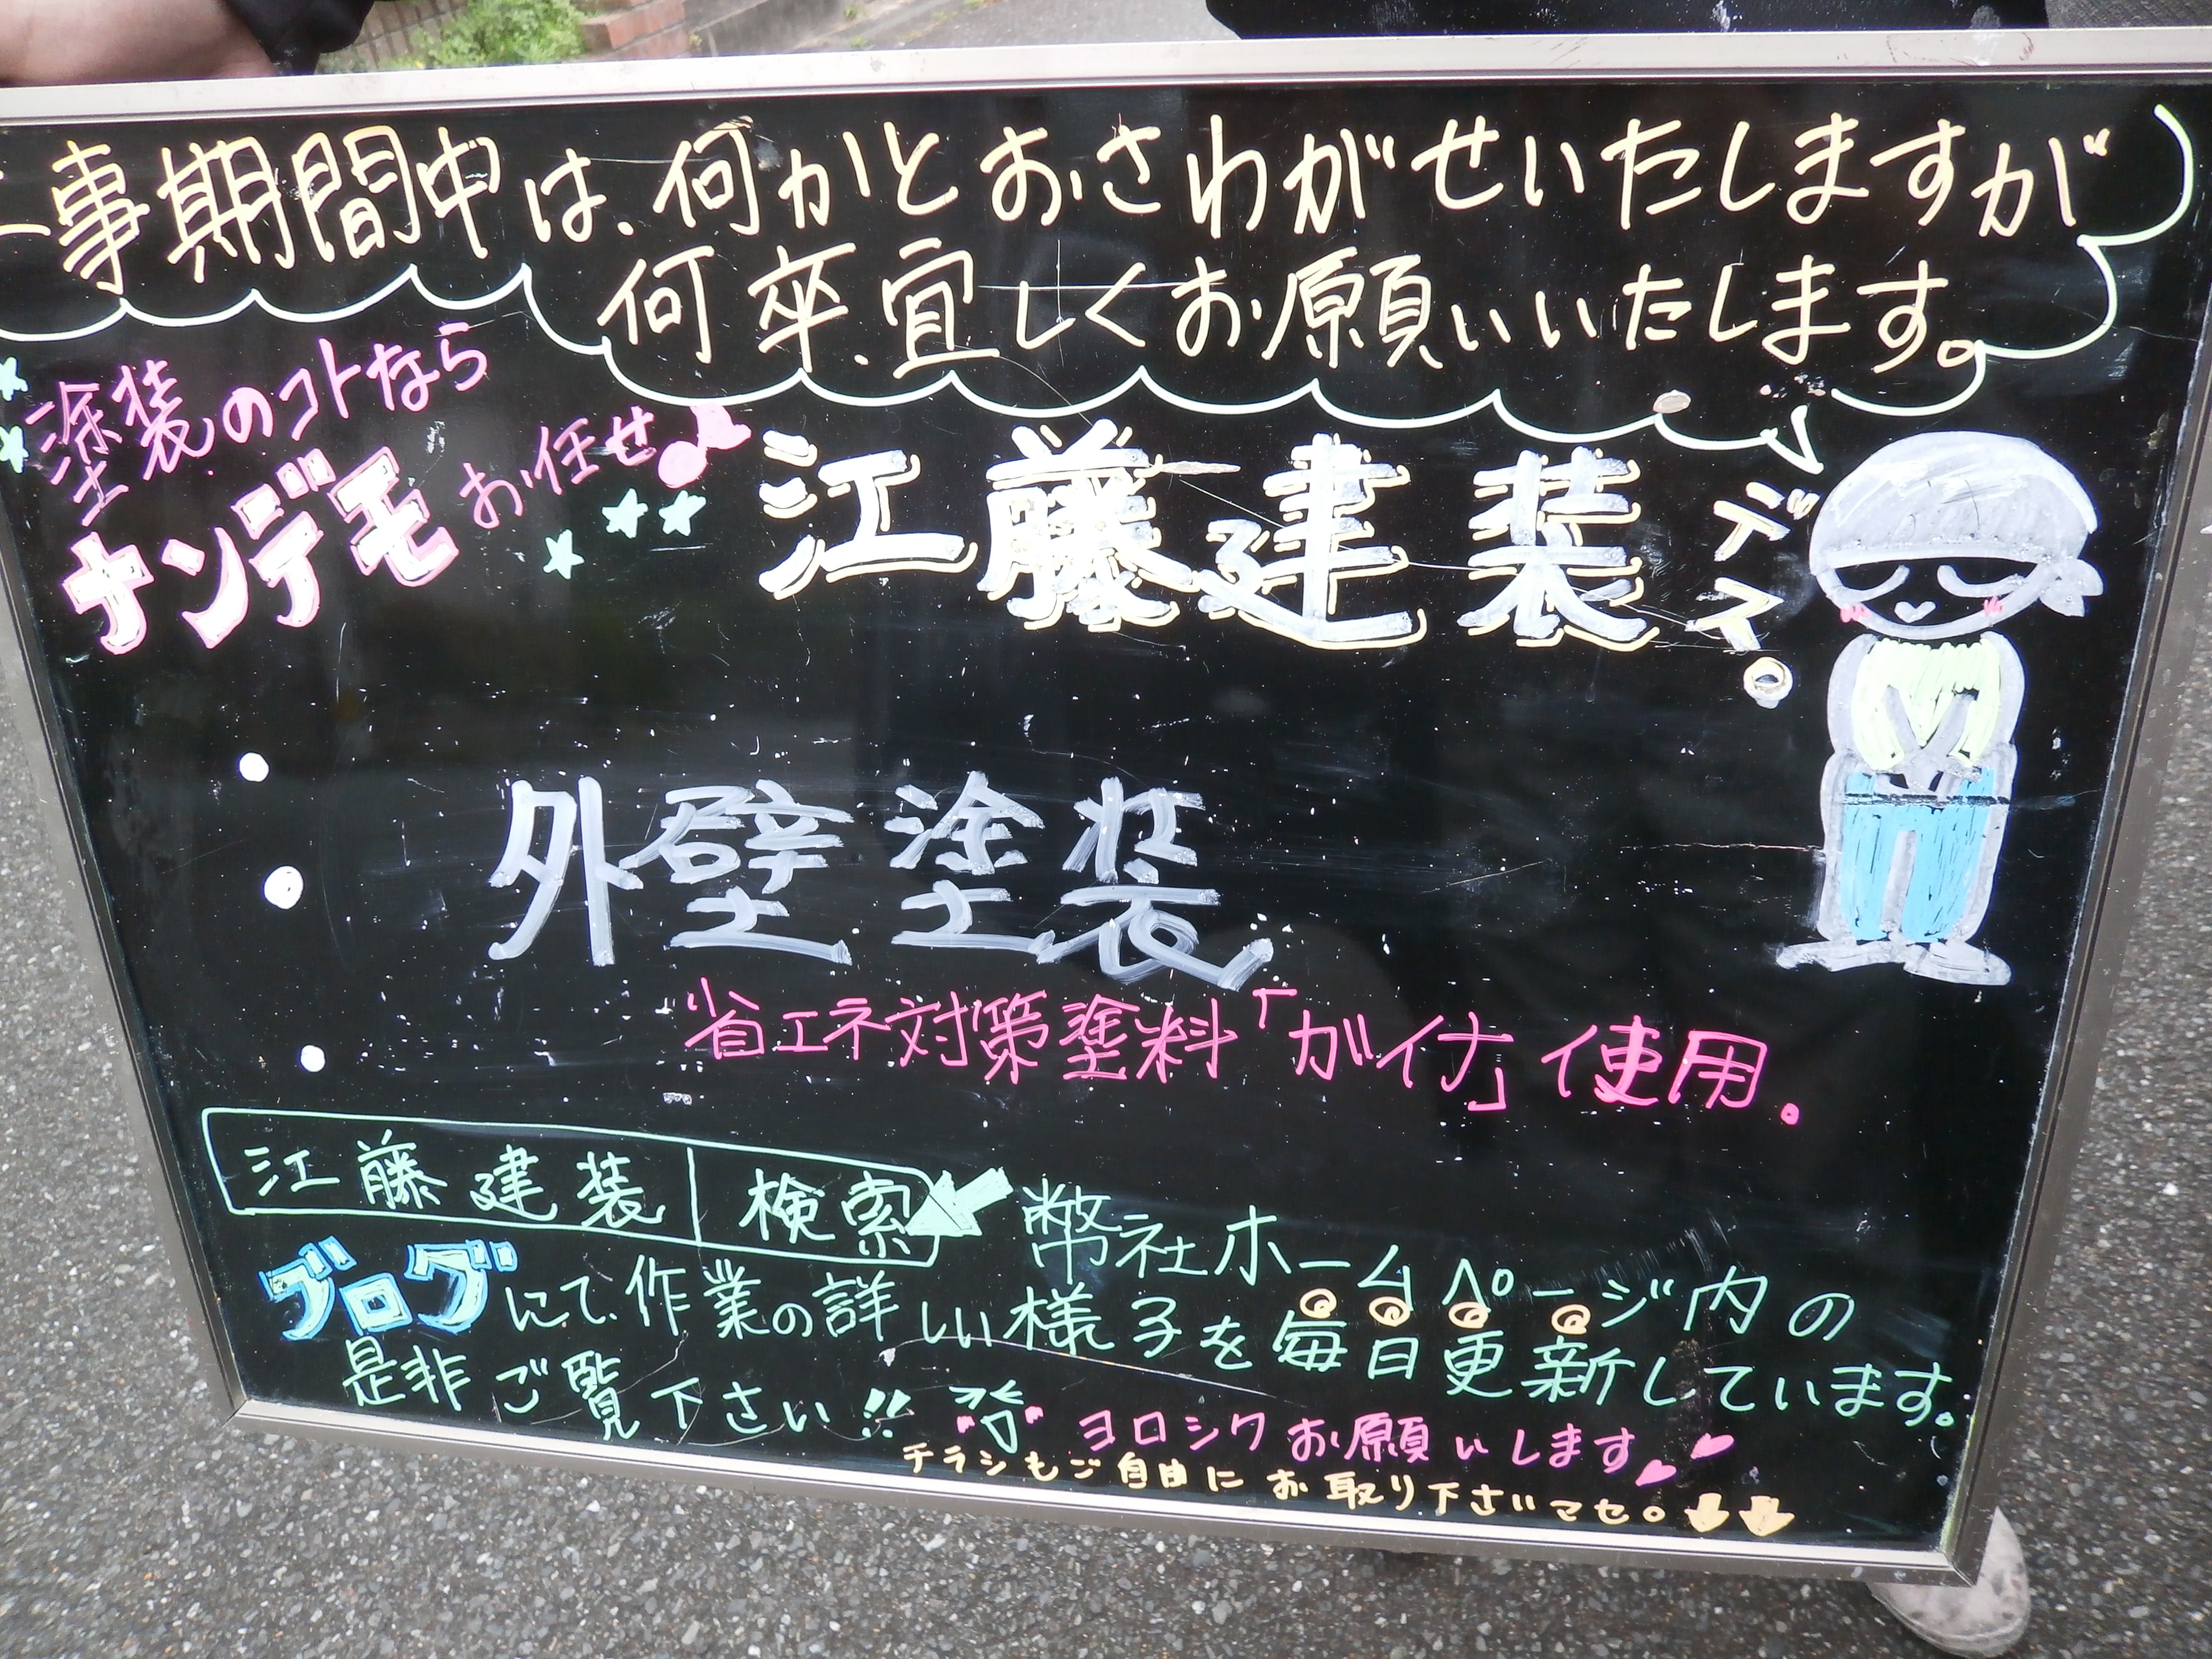 工事期間中は、何かとおさわがせいたしますが
何卒、宜しくお願いいたします。
塗装のコトなら
ナンデモお任せ♪
江藤建装デス。
外壁塗装
省エネ対策塗料「ガイナ」使用。
江藤建装 検索
幣社ホームページ内の
ブログにて、作業の詳しい様子を毎日更新しています。
是非ご覧下さい!!
ヨロシクお願いします
チラシもご自由にお取り下さいマセ。